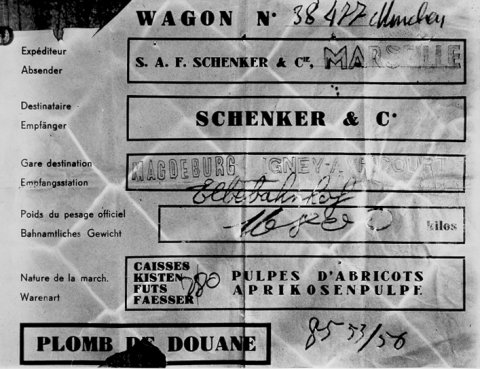 WAGON N° 38 477 München
Expéditeur
Absender
S. A. F. SCHENKER & Cie, MARSEILLE
Destinataire
Empfänger
SCHENKER & C°
Gare destination
Empfangsstation
MAGDEBURG IGNEY-AVRICOURT
Elbebahnhof
Poids du pesage officiel
Bahnamtliches Gewicht
kilos
Nature de la march.
Warenart
CAISSES
KISTEN
FUTS
FAESSER
780
PULPES D'ABRICOTS
APRIKOSENPULPE
PLOMB DE DOUANE
8553/56